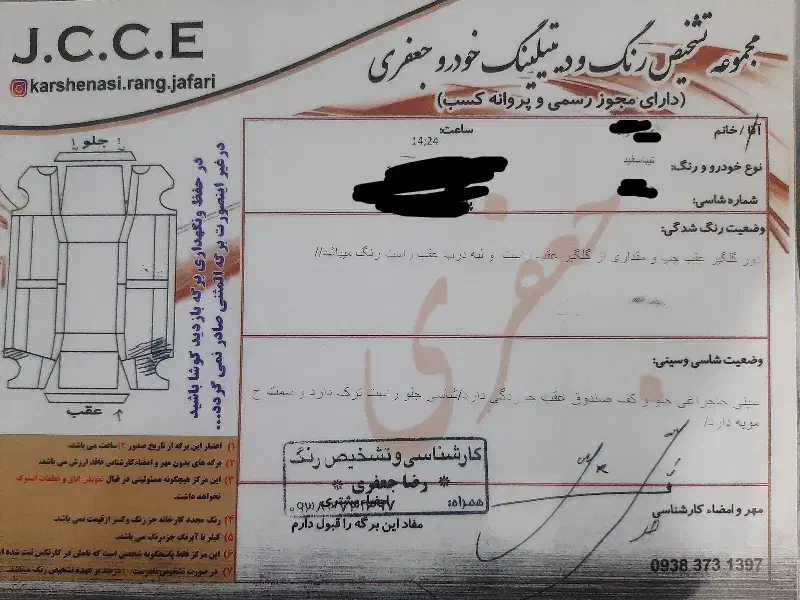 J.C.C.E
karshenasi.rang.jafari
مجموعه تشخیص رنگ و دیتیلینگ خودرو جعفری
(دارای مجوز رسمی و پروانه کسب)
آقا / خانم
ساعت:
14:24
نوع خودرو و رنگ:
تیبا سفید
شماره شاسی:
وضعیت رنگ شدگی:
دور گلگیر عقب چپ و مقداری از گلگیر عقب راست و لبه درب عقب راست رنگ میباشد//
وضعیت شاسی وسینی:
سینی جلو و کف صندوق عقب خوردگی دارد/شاسی جلو راست ترک دارد و سمت چ
مویه دارد/
جلو
عقب
در حفظ ونگهداری برگه بازدید کوشا باشید
درغیر اینصورت برگه المثنی صادر نمی گردد...
۱) اعتبار این برگه از تاریخ صدور ۱۲ ساعت می باشد.
۲) برگه های بدون مهر و امضاء کارشناس فاقد ارزش می باشد.
۳) این مرکز هیچگونه مسئولیتی در قبال تعویض اتاق و قطعات استوک
نخواهد داشت.
۴) رنگ مجدد کارخانه جز رنگ وکسر ازقیمت نمی باشد.
۵) کیلر یا آبرنگ جز رنگ می باشد.
۶) این مرکز فقط پاسخگو شخصی است که نامش در کارتکس ثبت شده
۷) در صورت تشخیص نادرست
کارشناسی و تشخیص رنگ
* رضا جعفری *
همراه:
امضا مشتری
مفاد این برگه را قبول دارم
مهر و امضاء کارشناسی
0938 373 1397
جعفری